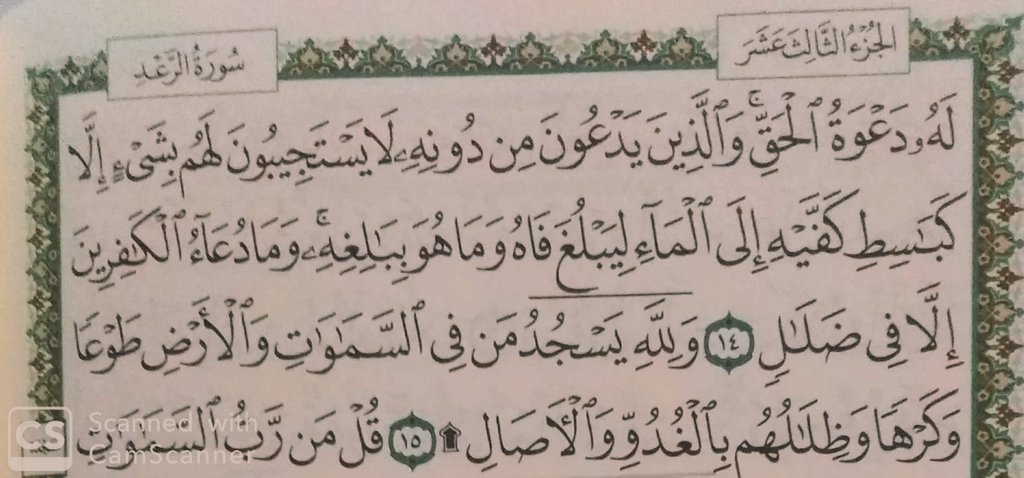 الجُزْءُ الثَّالِثَ عَشَرَ
سُورَةُ الرَّعْدِ
لَهُۥ دَعْوَةُ ٱلْحَقِّۚ وَٱلَّذِينَ يَدْعُونَ مِن دُونِهِۦ لَا يَسْتَجِيبُونَ لَهُم بِشَىْءٍ إِلَّا
كَبَـٰسِطِ كَفَّيْهِ إِلَى ٱلْمَآءِ لِيَبْلُغَ فَاهُ وَمَا هُوَ بِبَـٰلِغِهِۦۚ وَمَا دُعَآءُ ٱلْكَـٰفِرِينَ
إِلَّا فِى ضَلَـٰلٍ ١٤ وَلِلَّهِ يَسْجُدُ مَن فِى ٱلسَّمَـٰوَٰتِ وَٱلْأَرْضِ طَوْعًا
وَكَرْهًا وَظِلَـٰلُهُم بِٱلْغُدُوِّ وَٱلْـَٔاصَالِ ۩ ١٥ قُلْ مَن رَّبُّ ٱلسَّمَـٰوَٰتِ
CS Scanned with
CamScanner